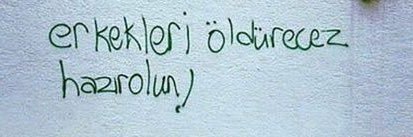 erkekleri öldürecez
hazırolun!